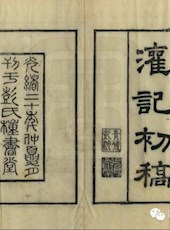 灌記初稿
光緒二十年仲夏月
刊于彭氏種書堂